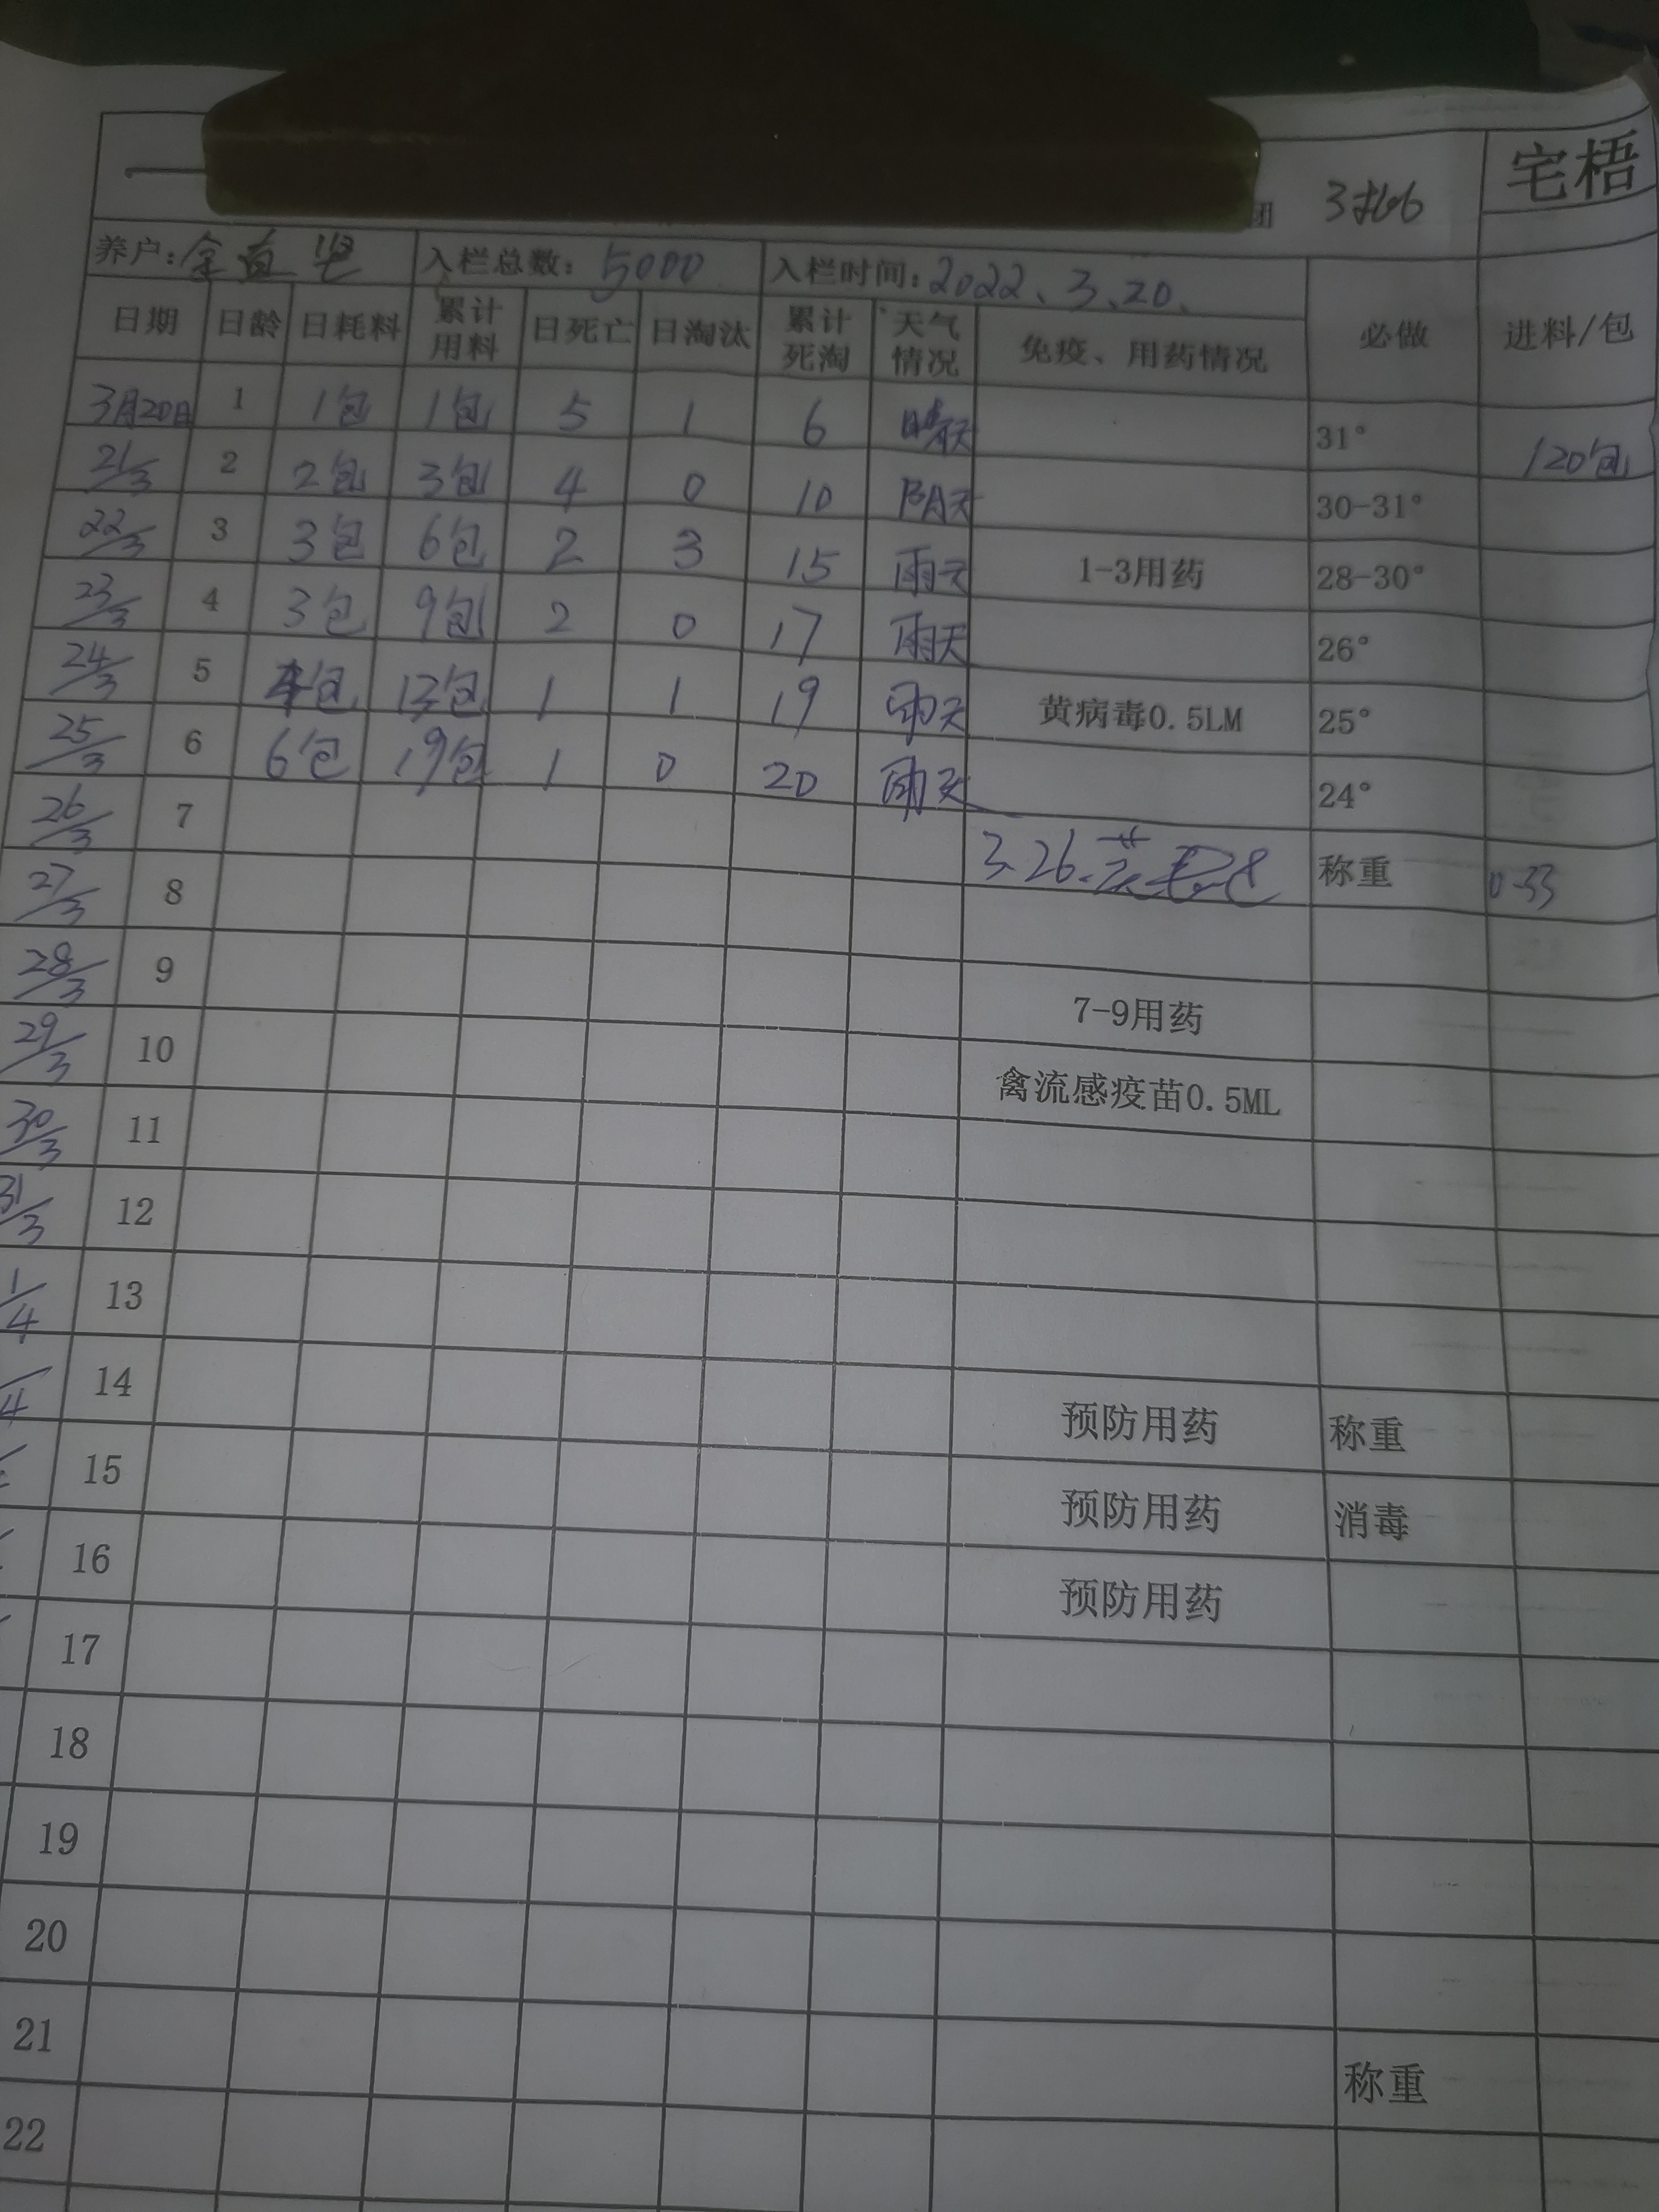 团 3批 宅梧
养户: 入栏总数: 5000 入栏时间: 2022、3、20、
日期 日龄 日耗料 累计用料 日死亡 日淘汰 累计死淘 天气情况 免疫、用药情况 必做 进料/包
3月20日 1 1包 1包 5 1 6 晴天 31° 120包
21/3 2 2包 3包 4 0 10 阴天 30-31°
22/3 3 3包 6包 2 3 15 雨天 1-3用药 28-30°
23/3 4 3包 9包 2 0 17 雨天 26°
24/3 5 4包 13包 1 1 19 雨天 黄病毒0.5LM 25°
25/3 6 6包 19包 1 0 20 雨天 24°
26/3 7 3.26. 称重 0.33
27/3 8
28/3 9 7-9用药
29/3 10 禽流感疫苗0.5ML
30/3 11
31/3 12
1/4 13
/4 14 预防用药 称重
15 预防用药 消毒
16 预防用药
17
18
19
20
21 称重
22